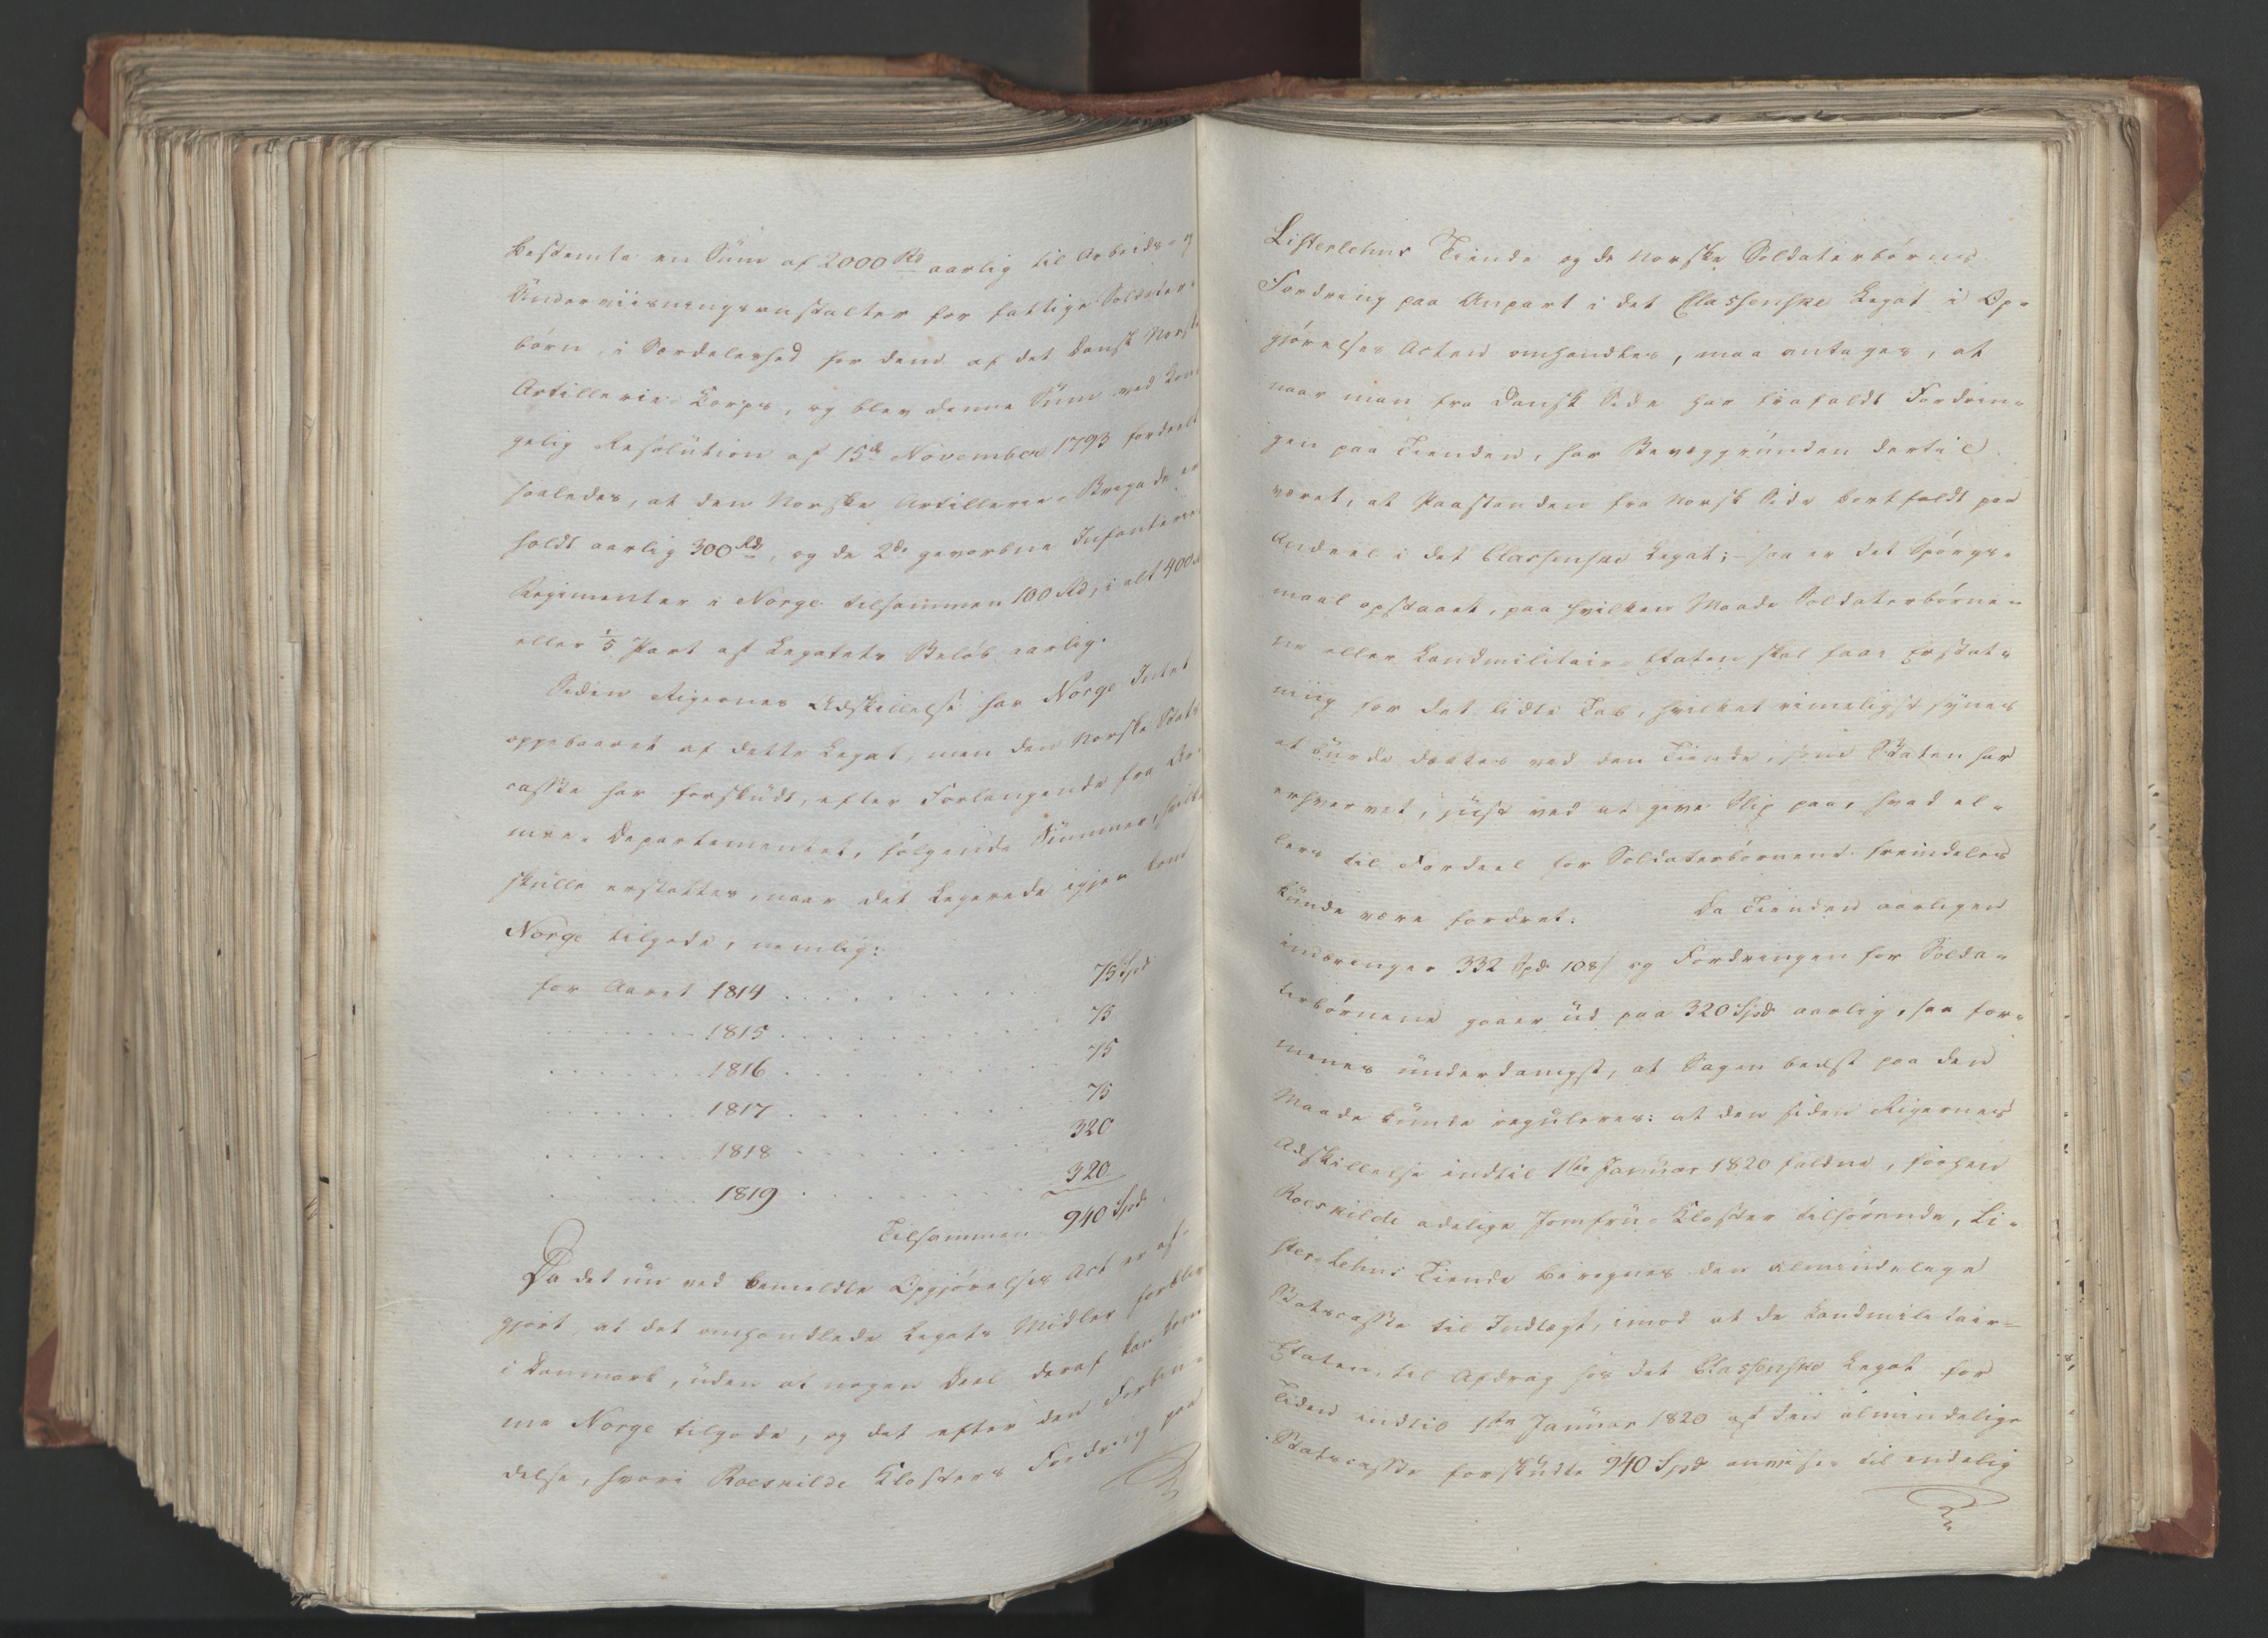 bestemte en Sum af 2000 Rd aarlig til Arbeids- og
Underviisningsanstalter for fattige Soldater-
børn, i Særdeleshed for dem af det Dansk Norske
Artillerie-Korps, og blev denne Sum ved Kon-
gelig Resolution af 15de November 1793 fordeelt
saaledes, at den Norske Artillerie-Brigade er-
holdt aarlig 300 Rd, og de 2de gevorbne Infanterie
Regimenter i Norge tilsammen 100 Rd, i alt 400 Rd
eller 1/5 Part af Legatets Beløb aarlig.
Siden Rigernes Adskillelse har Norge Intet
oppebaaret af dette Legat, men den Norske Stats-
casse har forskudt, efter Forlangende fra
Departementet, følgende Summer,
skulle erstattes, naar det Legerede igjen kom
Norge tilgode, nemlig:
for Aaret 1814 . . . . . . . . . 75 Spd
. . . . . . . 1815 . . . . . . . . . 75
. . . . . . . 1816 . . . . . . . . . 75
. . . . . . . 1817 . . . . . . . . . 75
. . . . . . . 1818 . . . . . . . . . 320
. . . . . . . 1819 . . . . . . . . . 320
Tilsammen 940 Spd.
Da det nu ved bemeldte Opgjørelses Act er af-
gjort, at det omhandlede Legats Midler forbliver
i Danmark, uden at nogen Deel deraf kan kom-
me Norge tilgode, og det efter den Forbin-
delse, hvori Roeskilde Klosters Fordring paa
Listerlehns Tiende og de Norske Soldaterbørns
Fordring paa Anpart i det Classenske Legat i Op-
gjørelses Acten omhandles, maa antages, at
naar man fra Dansk Side har frafaldt Fordrin-
gen paa Tienden, har Bevæggrunden dertil
været, at Paastanden fra Norsk Side bortfaldt paa
Andeel i det Classenske Legat; saa er det Spørgs-
maal opstaaet, paa hvilken Maade Soldaterbørne-
ne eller Landmilitair-Etaten skal faae Erstat-
ning for det lidte Tab, hvilket rimeligst synes
at burde dækkes ved den Tiende, som Staten har
erhvervet, just ved at give Slip paa, hvad el-
lers til Fordeel for Soldaterbørnene fremdeles
kunde være fordret. Da Tienden aarligen
indbringer 332 Spd 108 s og Fordringen for Solda-
terbørnene gaaer ud paa 320 Spd aarlig, saa for-
menes underdanigst, at Sagen bedst paa den
Maade kunde reguleres: at den siden Rigernes
Adskillelse indtil 1ste Januar 1820 faldne, forhen
Roeskilde adelige Jomfru-Kloster tilhørende, Li-
ster-Lehns Tiende beregnes den almindelige
Statscasse til Indtægt, imod at de Landmilitair-
Etaten, til Afdrag hos det Classenske Legat for
Tiden indtil 1ste Januar 1820 af den almindelige
Statscasse forskudte 940 Spd anvises til endelig